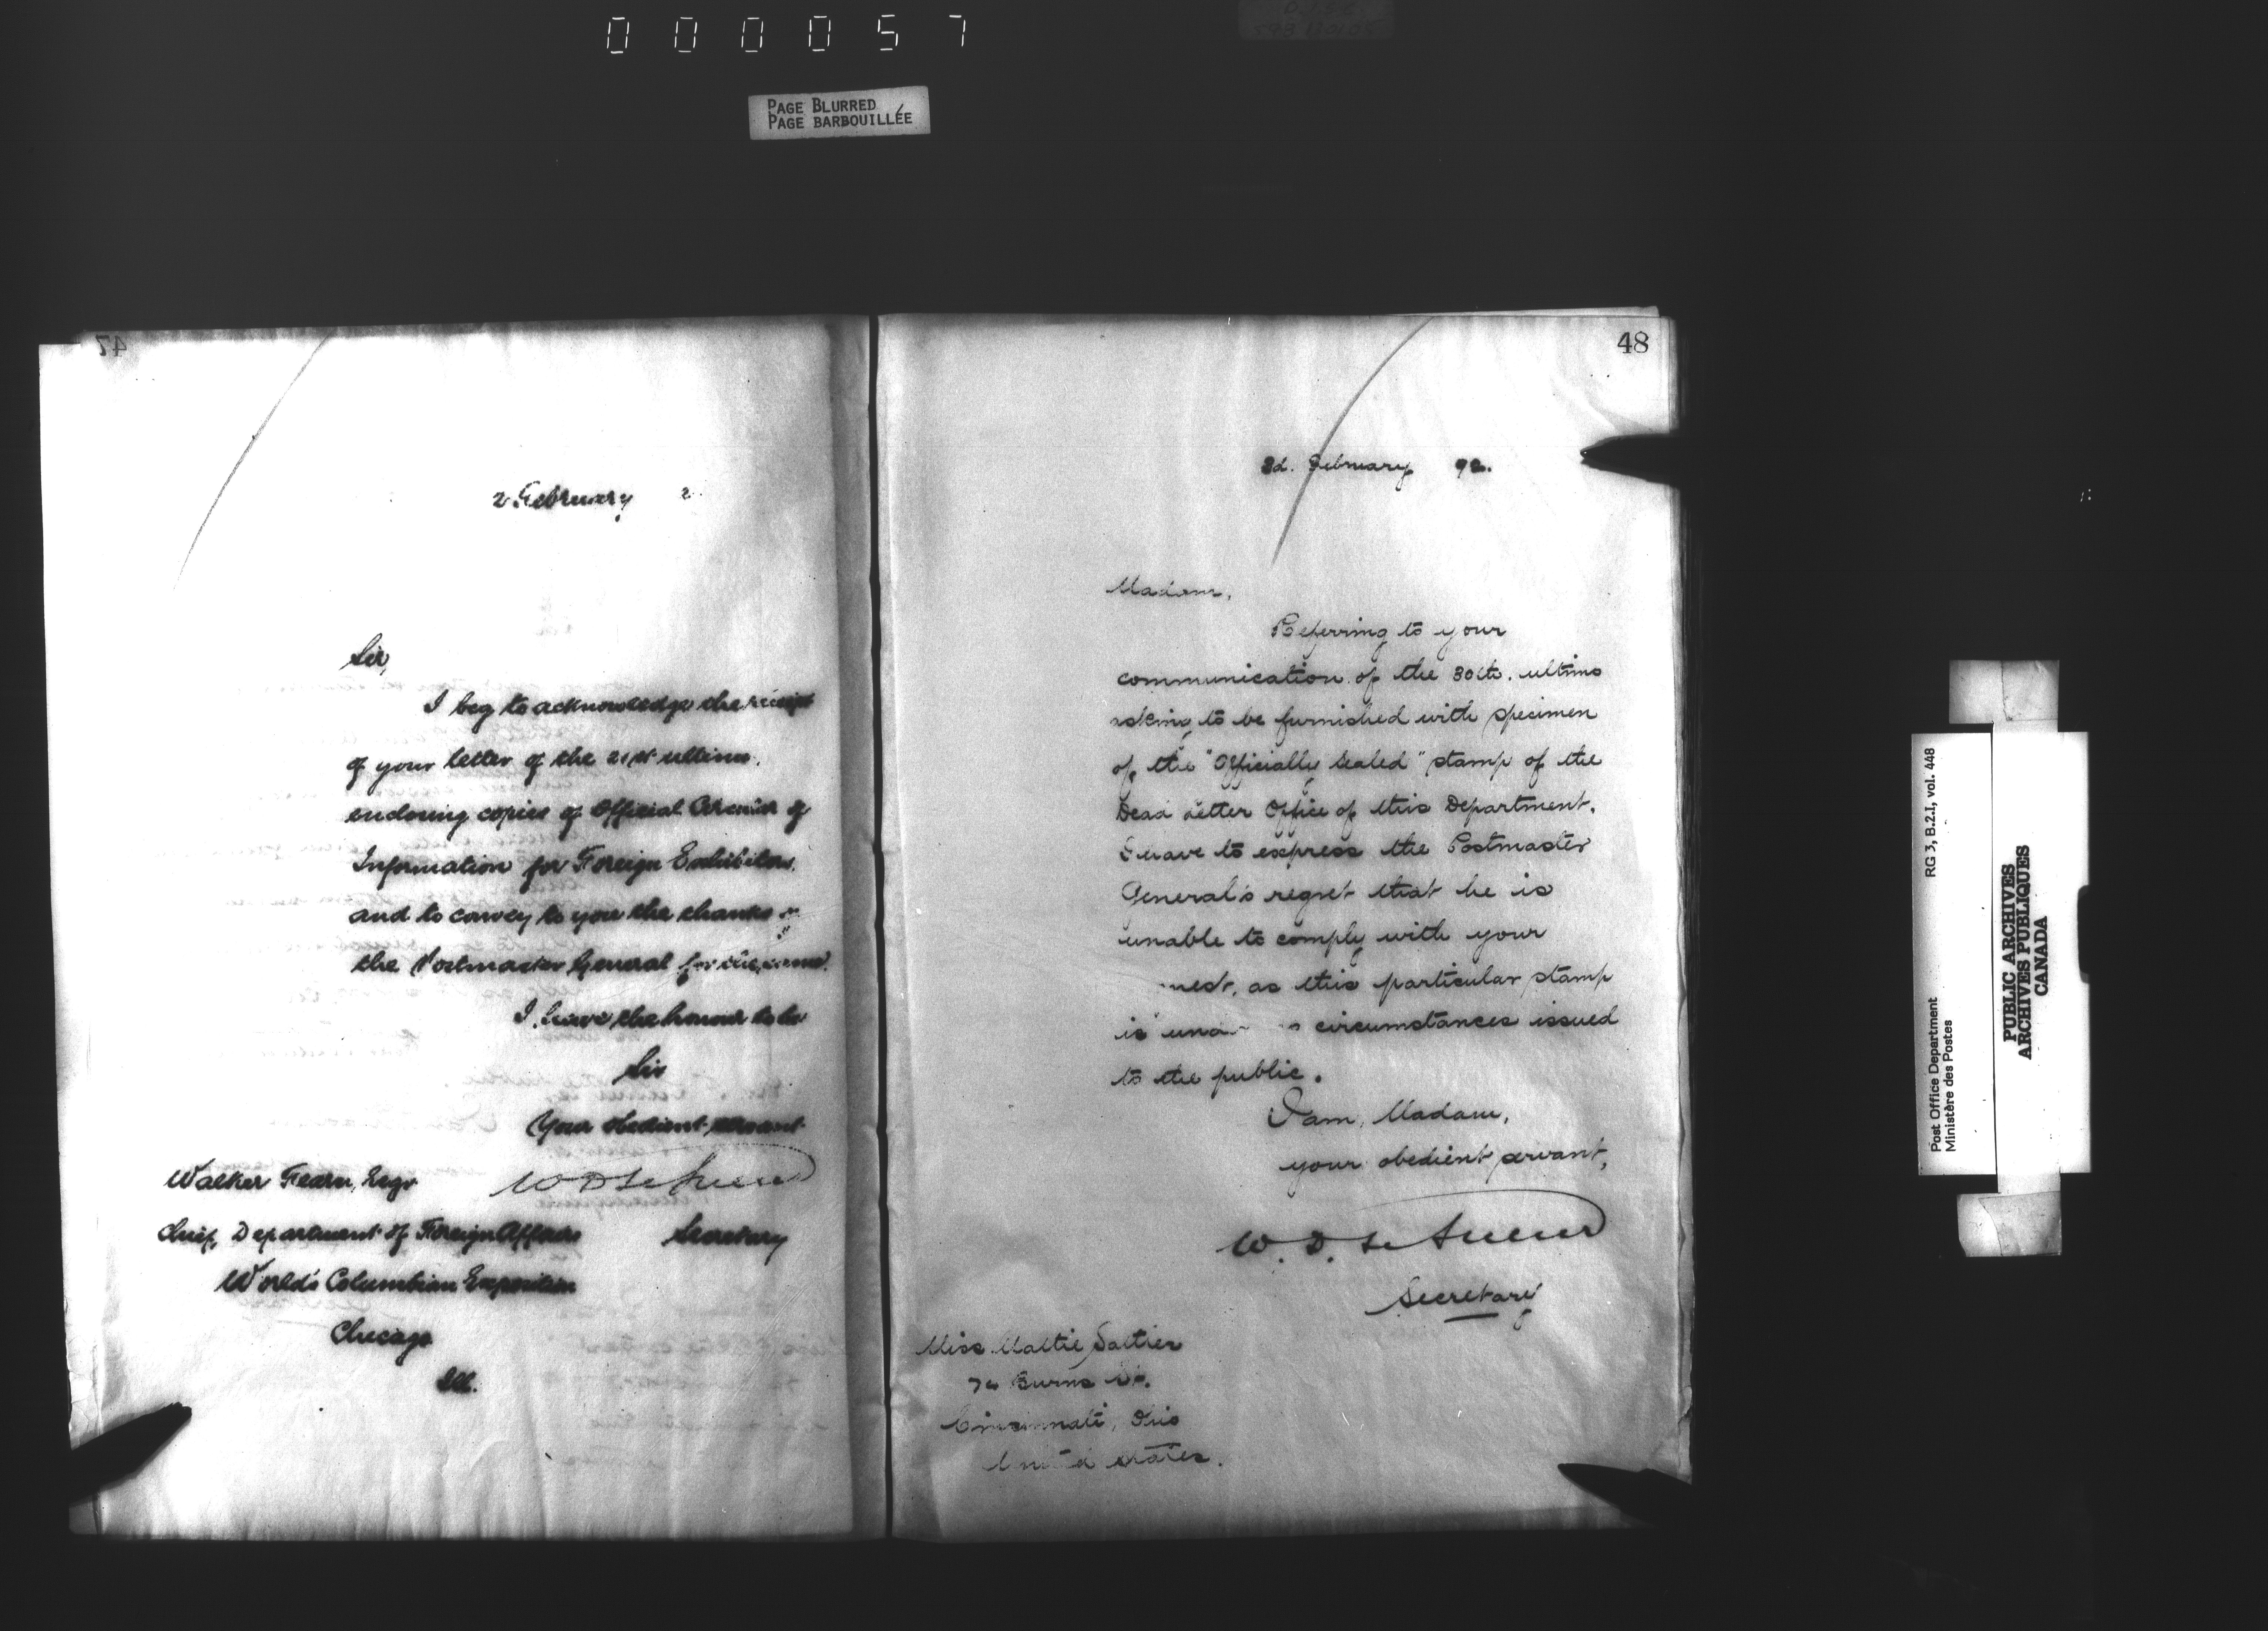 000057
PAGE BLURRED
PAGE BARBOUILLÉE
47
2 February 2
Sir,
I beg to acknowledge the receipt
of your letter of the 21st ultimo.
enclosing copies of Official Circular of
Information for Foreign Exhibitors,
and to convey to you the thanks of
the Postmaster General for the same.
I have the honour to be
Sir
Your obedient servant
W D Le Sueur
Secretary
Walker Fearn, Esqr
Chief, Department of Foreign Affairs
World's Columbian Exposition
Chicago
Ill.
48
2d. February 92.
Madam,
Referring to your
communication of the 30th. ultimo
asking to be furnished with specimen
of the "Officially Sealed" stamp of the
Dead Letter Office of this Department,
I have to express the Postmaster
General's regret that he is
unable to comply with your
, as this particular stamp
is circumstances issued
to the public.
I am, Madam,
your obedient servant,
W. D. Le Sueur
Secretary
Miss Mattie
Burns St.
Cincinnati, Ohio
United States.
Post Office Department
Ministère des Postes
RG 3, B.2.I, vol. 448
PUBLIC ARCHIVES
ARCHIVES PUBLIQUES
CANADA